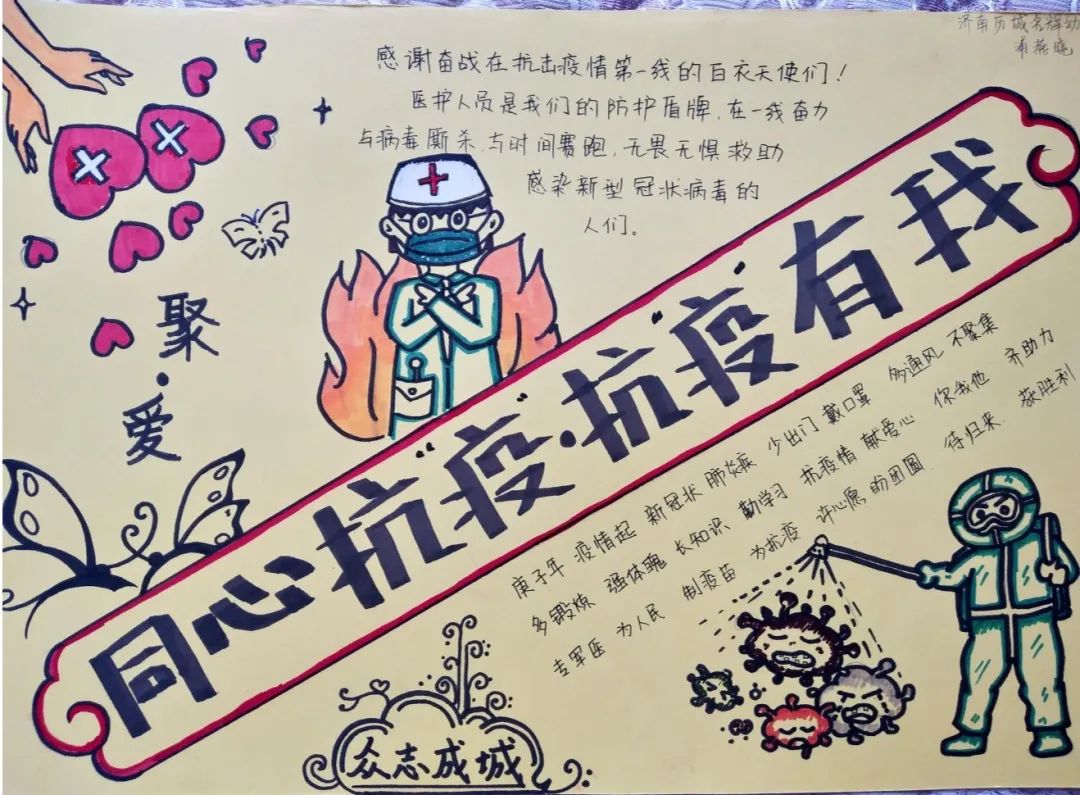 济南历城
感谢奋战在抗击疫情第一线的白衣天使们！
医护人员是我们的防护盾牌，在一线奋力
与病毒厮杀，与时间赛跑，无畏无惧救助
感染新型冠状病毒的
人们。
聚·爱
同心抗“疫”·抗“疫”有我
庚子年 疫情起 新冠状 肺炎疾 少出门 戴口罩 多通风 不聚集
多锻炼 强体魄 长知识 勤学习 抗疫情 献爱心 你我他 齐助力
专军医 为人民 制疫苗 为抗疫 许心愿 盼团圆 待归来 获胜利
众志成城